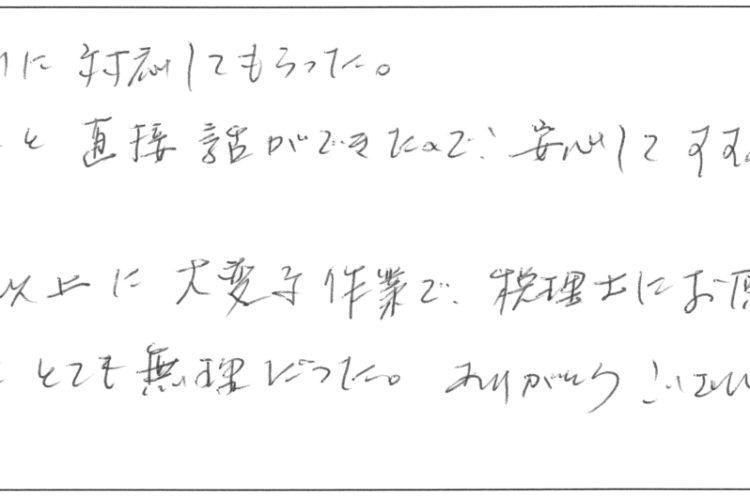 に対応してもらった。
と直接話ができたので、安心して すす
以上に大変な作業で、税理士にお
とても無理だった。ありがとうございい